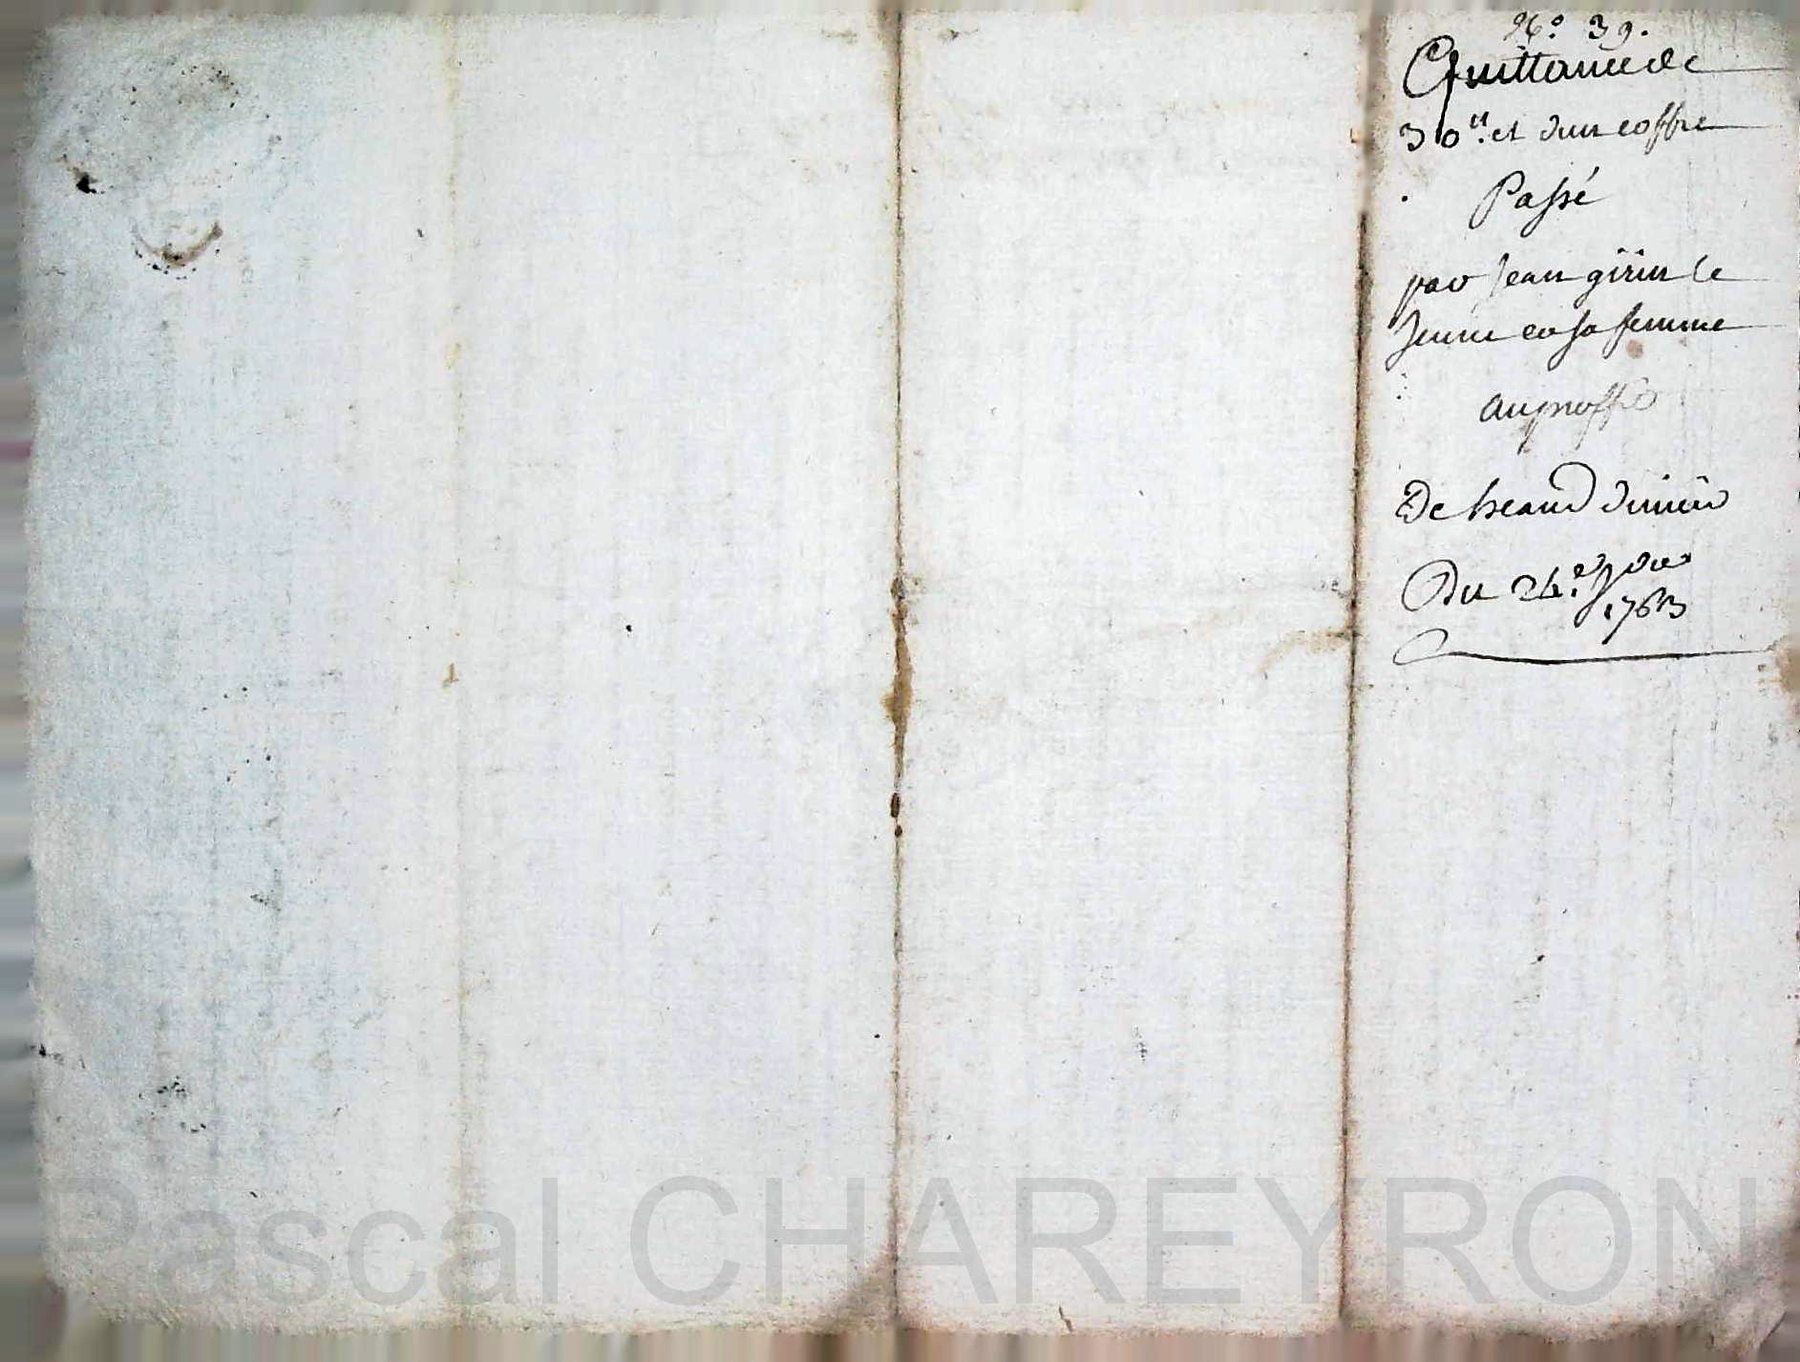 N.° 39.
Quittance de
30ᵗᵗ. et dun coffre
Passé
par Jean girin le
Jeune et sa femme
au proffit
De
Du 24.e
1763
Pascal CHAREYRON